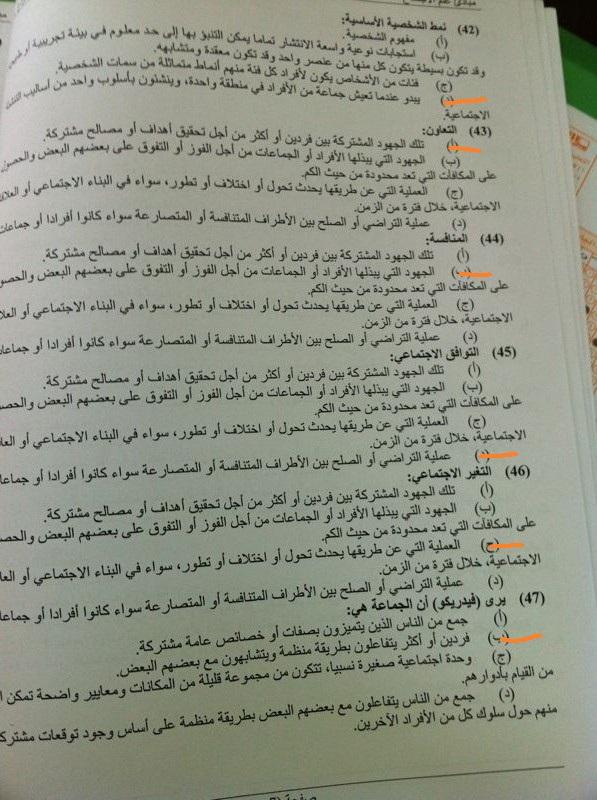 مبادئ علم الاجتماع
(42) نمط الشخصية الأساسية:
(أ) مفهوم الشخصية.
(ب) استجابات نوعية واسعة الانتشار تماما يمكن التنبؤ بها إلى حد معلوم في بيئة تجريبية أو
وقد تكون بسيطة يتكون كل منها من عنصر واحد وقد تكون معقدة ومتشابهه.
(ج) فئات من الأشخاص يكون لأفراد كل فئة منهم أنماط متماثلة من سمات الشخصية.
(د) يبدو عندما تعيش جماعة من الأفراد في منطقة واحدة، وينشئون بأسلوب واحد من أساليب
الاجتماعية.
(43) التعاون:
(أ) تلك الجهود المشتركة بين فردين أو أكثر من أجل تحقيق أهداف أو مصالح مشتركة.
(ب) الجهود التي يبذلها الأفراد أو الجماعات من أجل الفوز أو التفوق على بعضهم البعض
على المكافآت التي تعد محدودة من حيث الكم.
(ج) العملية التي عن طريقها يحدث تحول أو اختلاف أو تطور، سواء في البناء الاجتماعي أو
الاجتماعية، خلال فترة من الزمن.
(د) عملية التراضي أو الصلح بين الأطراف المتنافسة أو المتصارعة سواء كانوا أفرادا أو جماعات
(44) المنافسة:
(أ) تلك الجهود المشتركة بين فردين أو أكثر من أجل تحقيق أهداف أو مصالح مشتركة.
(ب) الجهود التي يبذلها الأفراد أو الجماعات من أجل الفوز أو التفوق على بعضهم البعض
على المكافآت التي تعد محدودة من حيث الكم.
(ج) العملية التي عن طريقها يحدث تحول أو اختلاف أو تطور، سواء في البناء الاجتماعي أو
الاجتماعية، خلال فترة من الزمن.
(د) عملية التراضي أو الصلح بين الأطراف المتنافسة أو المتصارعة سواء كانوا أفرادا أو
(45) التوافق الاجتماعي:
(أ) تلك الجهود المشتركة بين فردين أو أكثر من أجل تحقيق أهداف أو مصالح مشتركة.
(ب) الجهود التي يبذلها الأفراد أو الجماعات من أجل الفوز أو التفوق على بعضهم البعض
على المكافآت التي تعد محدودة من حيث الكم.
(ج) العملية التي عن طريقها يحدث تحول أو اختلاف أو تطور، سواء في البناء الاجتماعي أو
الاجتماعية، خلال فترة من الزمن.
(د) عملية التراضي أو الصلح بين الأطراف المتنافسة أو المتصارعة سواء كانوا أفرادا أو
(46) التغير الاجتماعي:
(أ) تلك الجهود المشتركة بين فردين أو أكثر من أجل تحقيق أهداف أو مصالح مشتركة.
(ب) الجهود التي يبذلها الأفراد أو الجماعات من أجل الفوز أو التفوق على بعضهم البعض
على المكافآت التي تعد محدودة من حيث الكم.
(ج) العملية التي عن طريقها يحدث تحول أو اختلاف أو تطور، سواء في البناء الاجتماعي أو
الاجتماعية، خلال فترة من الزمن.
(د) عملية التراضي أو الصلح بين الأطراف المتنافسة أو المتصارعة سواء كانوا أفرادا أو
(47) يرى (فيدريكو) أن الجماعة هي:
(أ) جمع من الناس الذين يتميزون بصفات أو خصائص عامة مشتركة.
(ب) فردين أو أكثر يتفاعلون بطريقة منظمة ويتشابهون مع بعضهم البعض.
(ج) وحدة اجتماعية صغيرة نسبيا، تتكون من مجموعة قليلة من المكانات ومعايير واضحة تمكن
من القيام بأدوارهم.
(د) جمع من الناس يتفاعلون مع بعضهم البعض بطريقة منظمة على أساس وجود توقعات
منهم حول سلوك كل من الأفراد الآخرين.